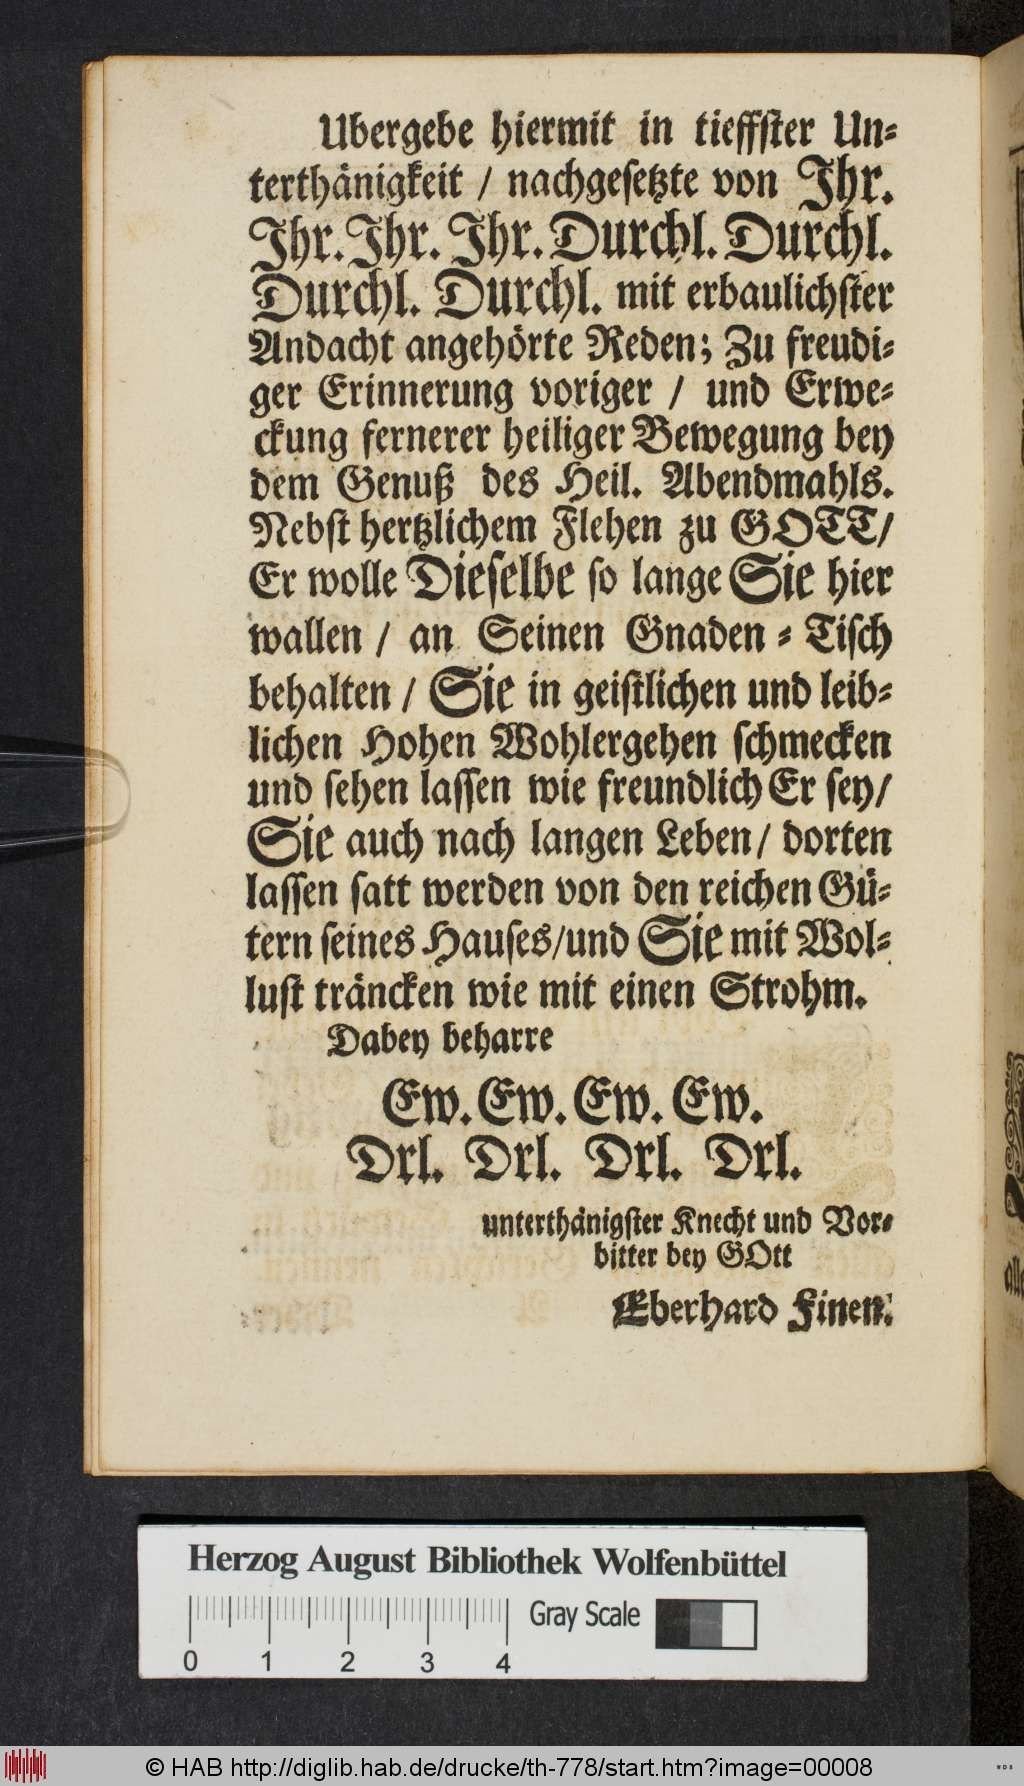 Ubergebe hiermit in tieffster Un-
terthänigkeit / nachgesetzte von Ihr.
Ihr. Ihr. Ihr. Durchl. Durchl.
Durchl. Durchl. mit erbaulichster
Andacht angehörte Reden; Zu freudi-
ger Erinnerung voriger / und Erwe-
ckung fernerer heiliger Bewegung bey
dem Genuß des Heil. Abendmahls.
Nebst hertzlichem Flehen zu GOTT/
Er wolle Dieselbe so lange Sie hier
wallen / an Seinen Gnaden-Tisch
behalten / Sie in geistlichen und leib-
lichen Hohen Wohlergehen schmecken
und sehen lassen wie freundlich Er sey/
Sie auch nach langen Leben/ dorten
lassen satt werden von den reichen Gü-
tern seines Hauses/und Sie mit Wol-
lust träncken wie mit einen Strohm.
Dabey beharre
Ew. Ew. Ew. Ew.
Drl. Drl. Drl. Drl.
unterthänigster Knecht und Vor-
bitter bey GOtt
Eberhard Finen.
Herzog August Bibliothek Wolfenbüttel
0 1 2 3 4 Gray Scale
© HAB http://diglib.hab.de/drucke/th-778/start.htm?image=00008